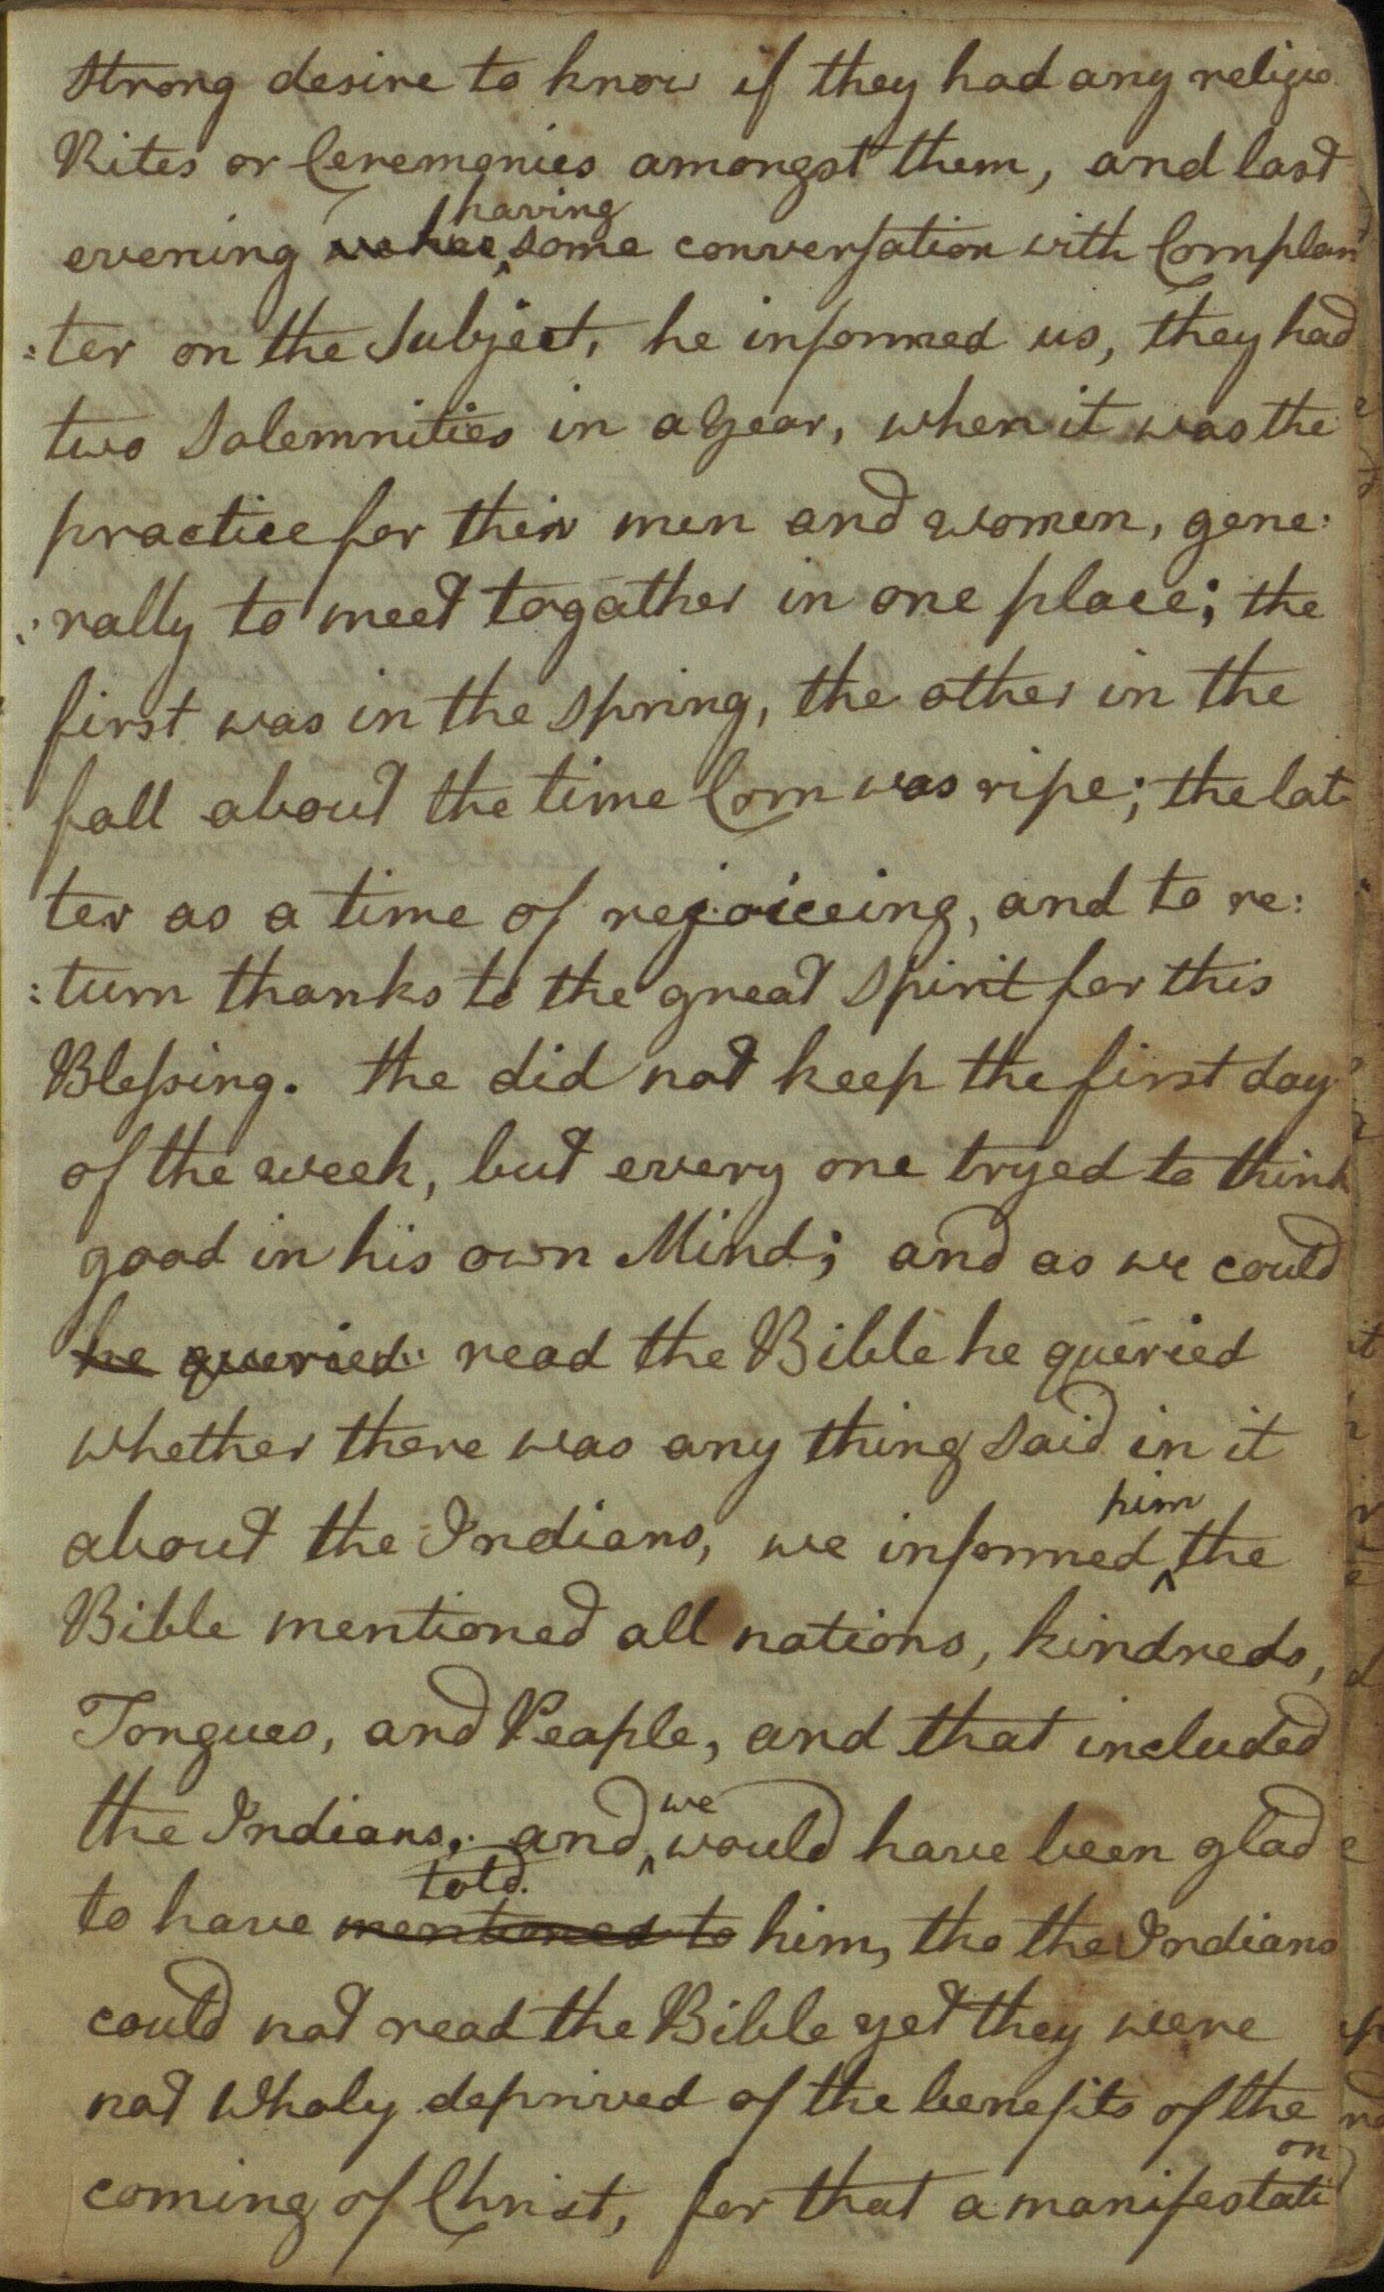 strong desire to know if they had any religio
Rites or Ceremonies amongst them, and last
evening having some conversation with Cornplan
:ter on the Subject, he informed us, they had
two Solemnities in a Year, when it was the
practice for their men and women, gene:
:rally to meet togather in one place; the
first was in the Spring, the other in the
fall about the time Corn was ripe; the lat
ter as a time of rejoiceing, and to re:
:turn thanks to the great Spirit for this
Blessing. the did not keep the first day
of the week, but every one tryed to think
good in his own Mind; and as we could
he queried read the Bible he queried
whether there was any thing said in it
about the Indians, we informed him the
Bible mentioned all nations, kindreds,
Tongues, and People, and that included
the Indians, and we would have been glad
to have mentioned to told him, tho the Indians
could not read the Bible yet they were
not Wholy deprived of the benefits of the
coming of Christ, for that a manifestation